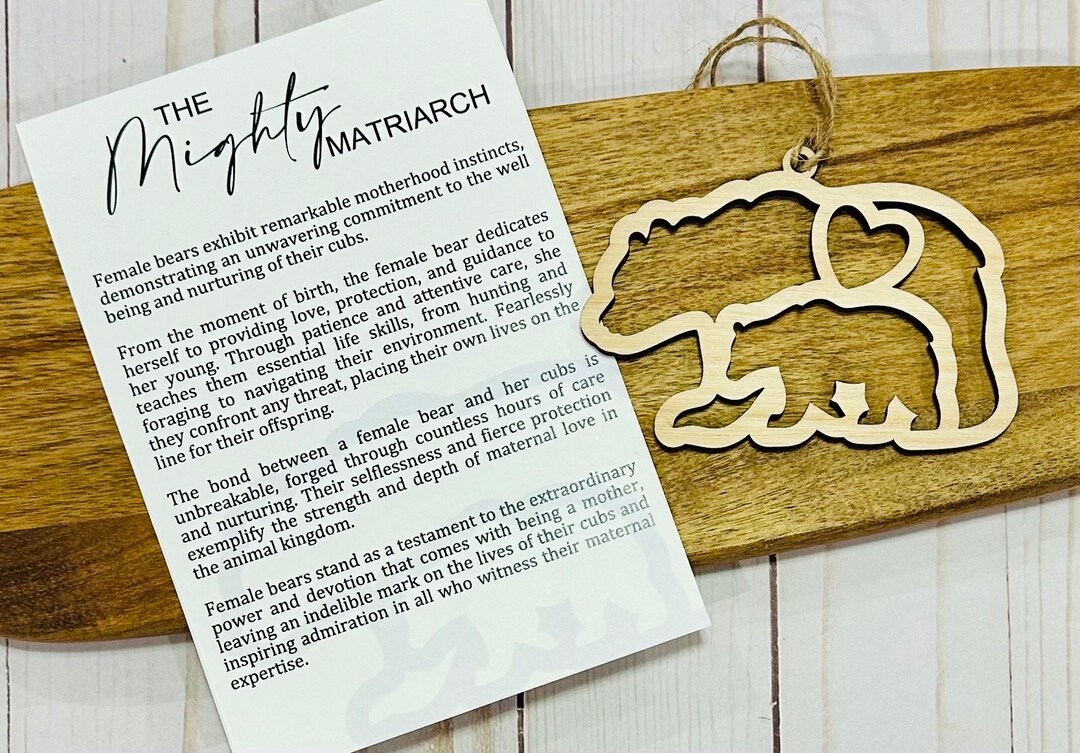 THE
Mighty
MATRIARCH
Female bears exhibit remarkable motherhood instincts,
demonstrating an unwavering commitment to the well
being and nurturing of their cubs.
From the moment of birth, the female bear dedicates
herself to providing love, protection, and guidance to
her young. Through patience and attentive care, she
teaches them essential life skills, from hunting and
foraging to navigating their environment. Fearlessly
they confront any threat, placing their own lives on the
line for their offspring.
The bond between a female bear and her cubs is
unbreakable, forged through countless hours of care
and nurturing. Their selflessness and fierce protection
exemplify the strength and depth of maternal love in
the animal kingdom.
Female bears stand as a testament to the extraordinary
power and devotion that comes with being a mother,
leaving an indelible mark on the lives of their cubs and
inspiring admiration in all who witness their maternal
expertise.